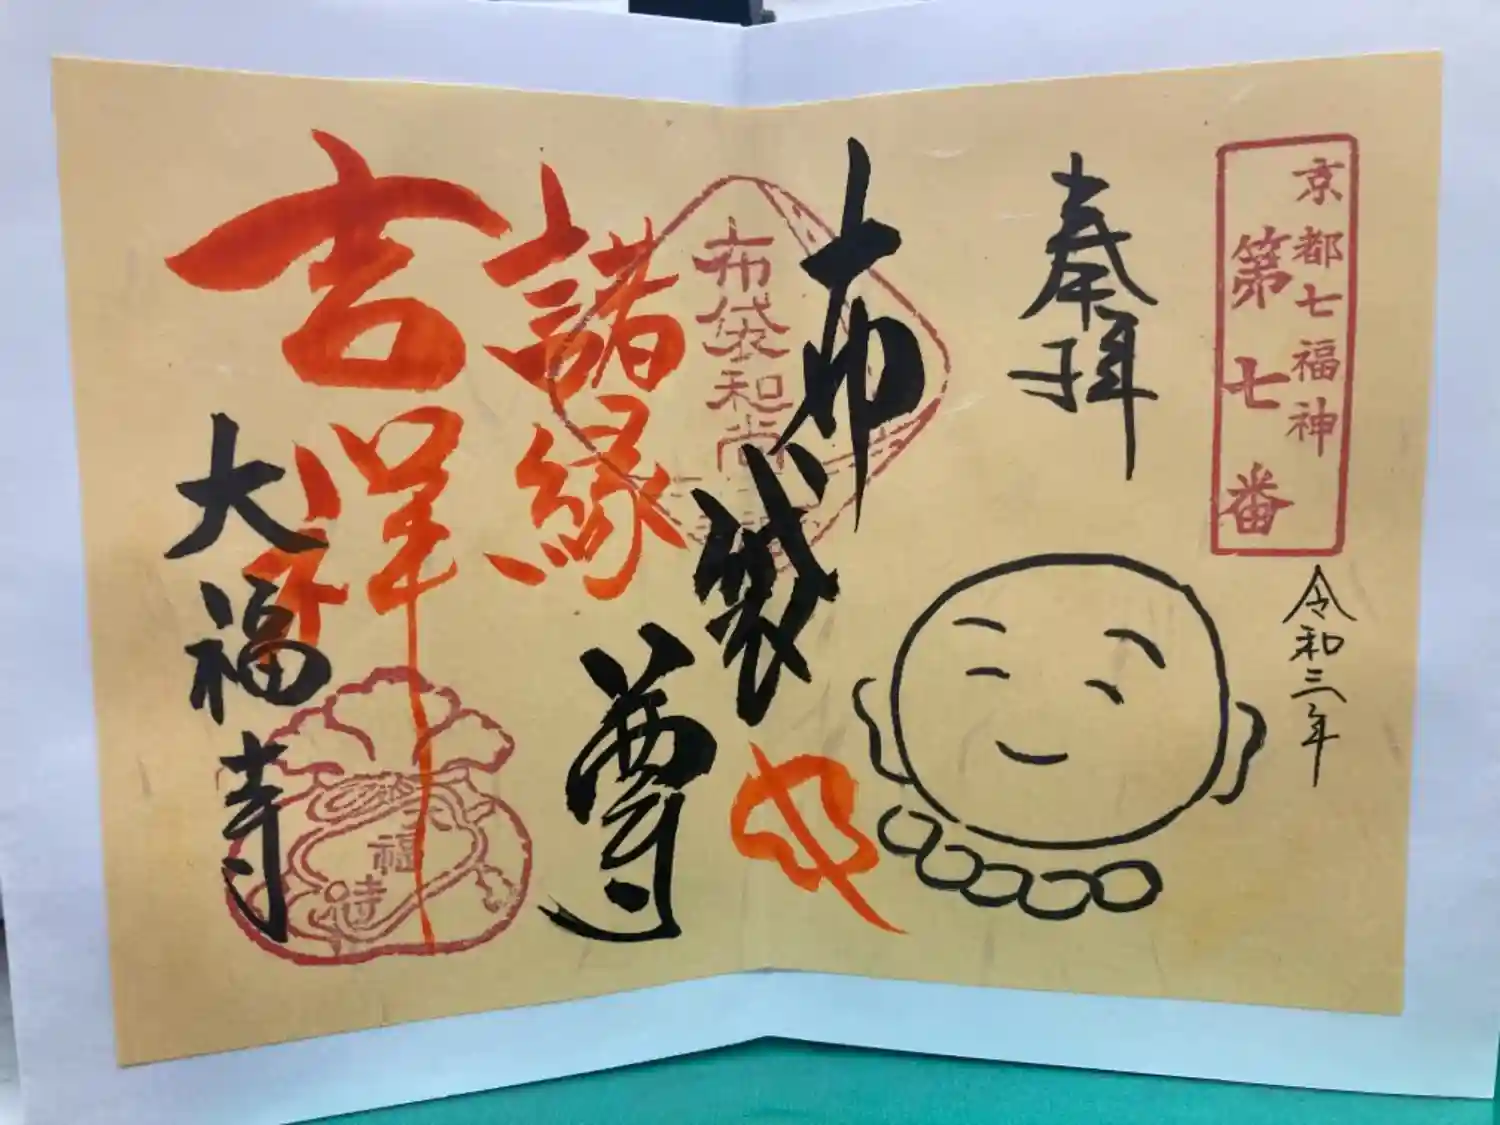 京都七福神
第七番
令和三年
奉拝
布袋尊
布袋和尚
諸縁
吉祥
大福寺
大福寺